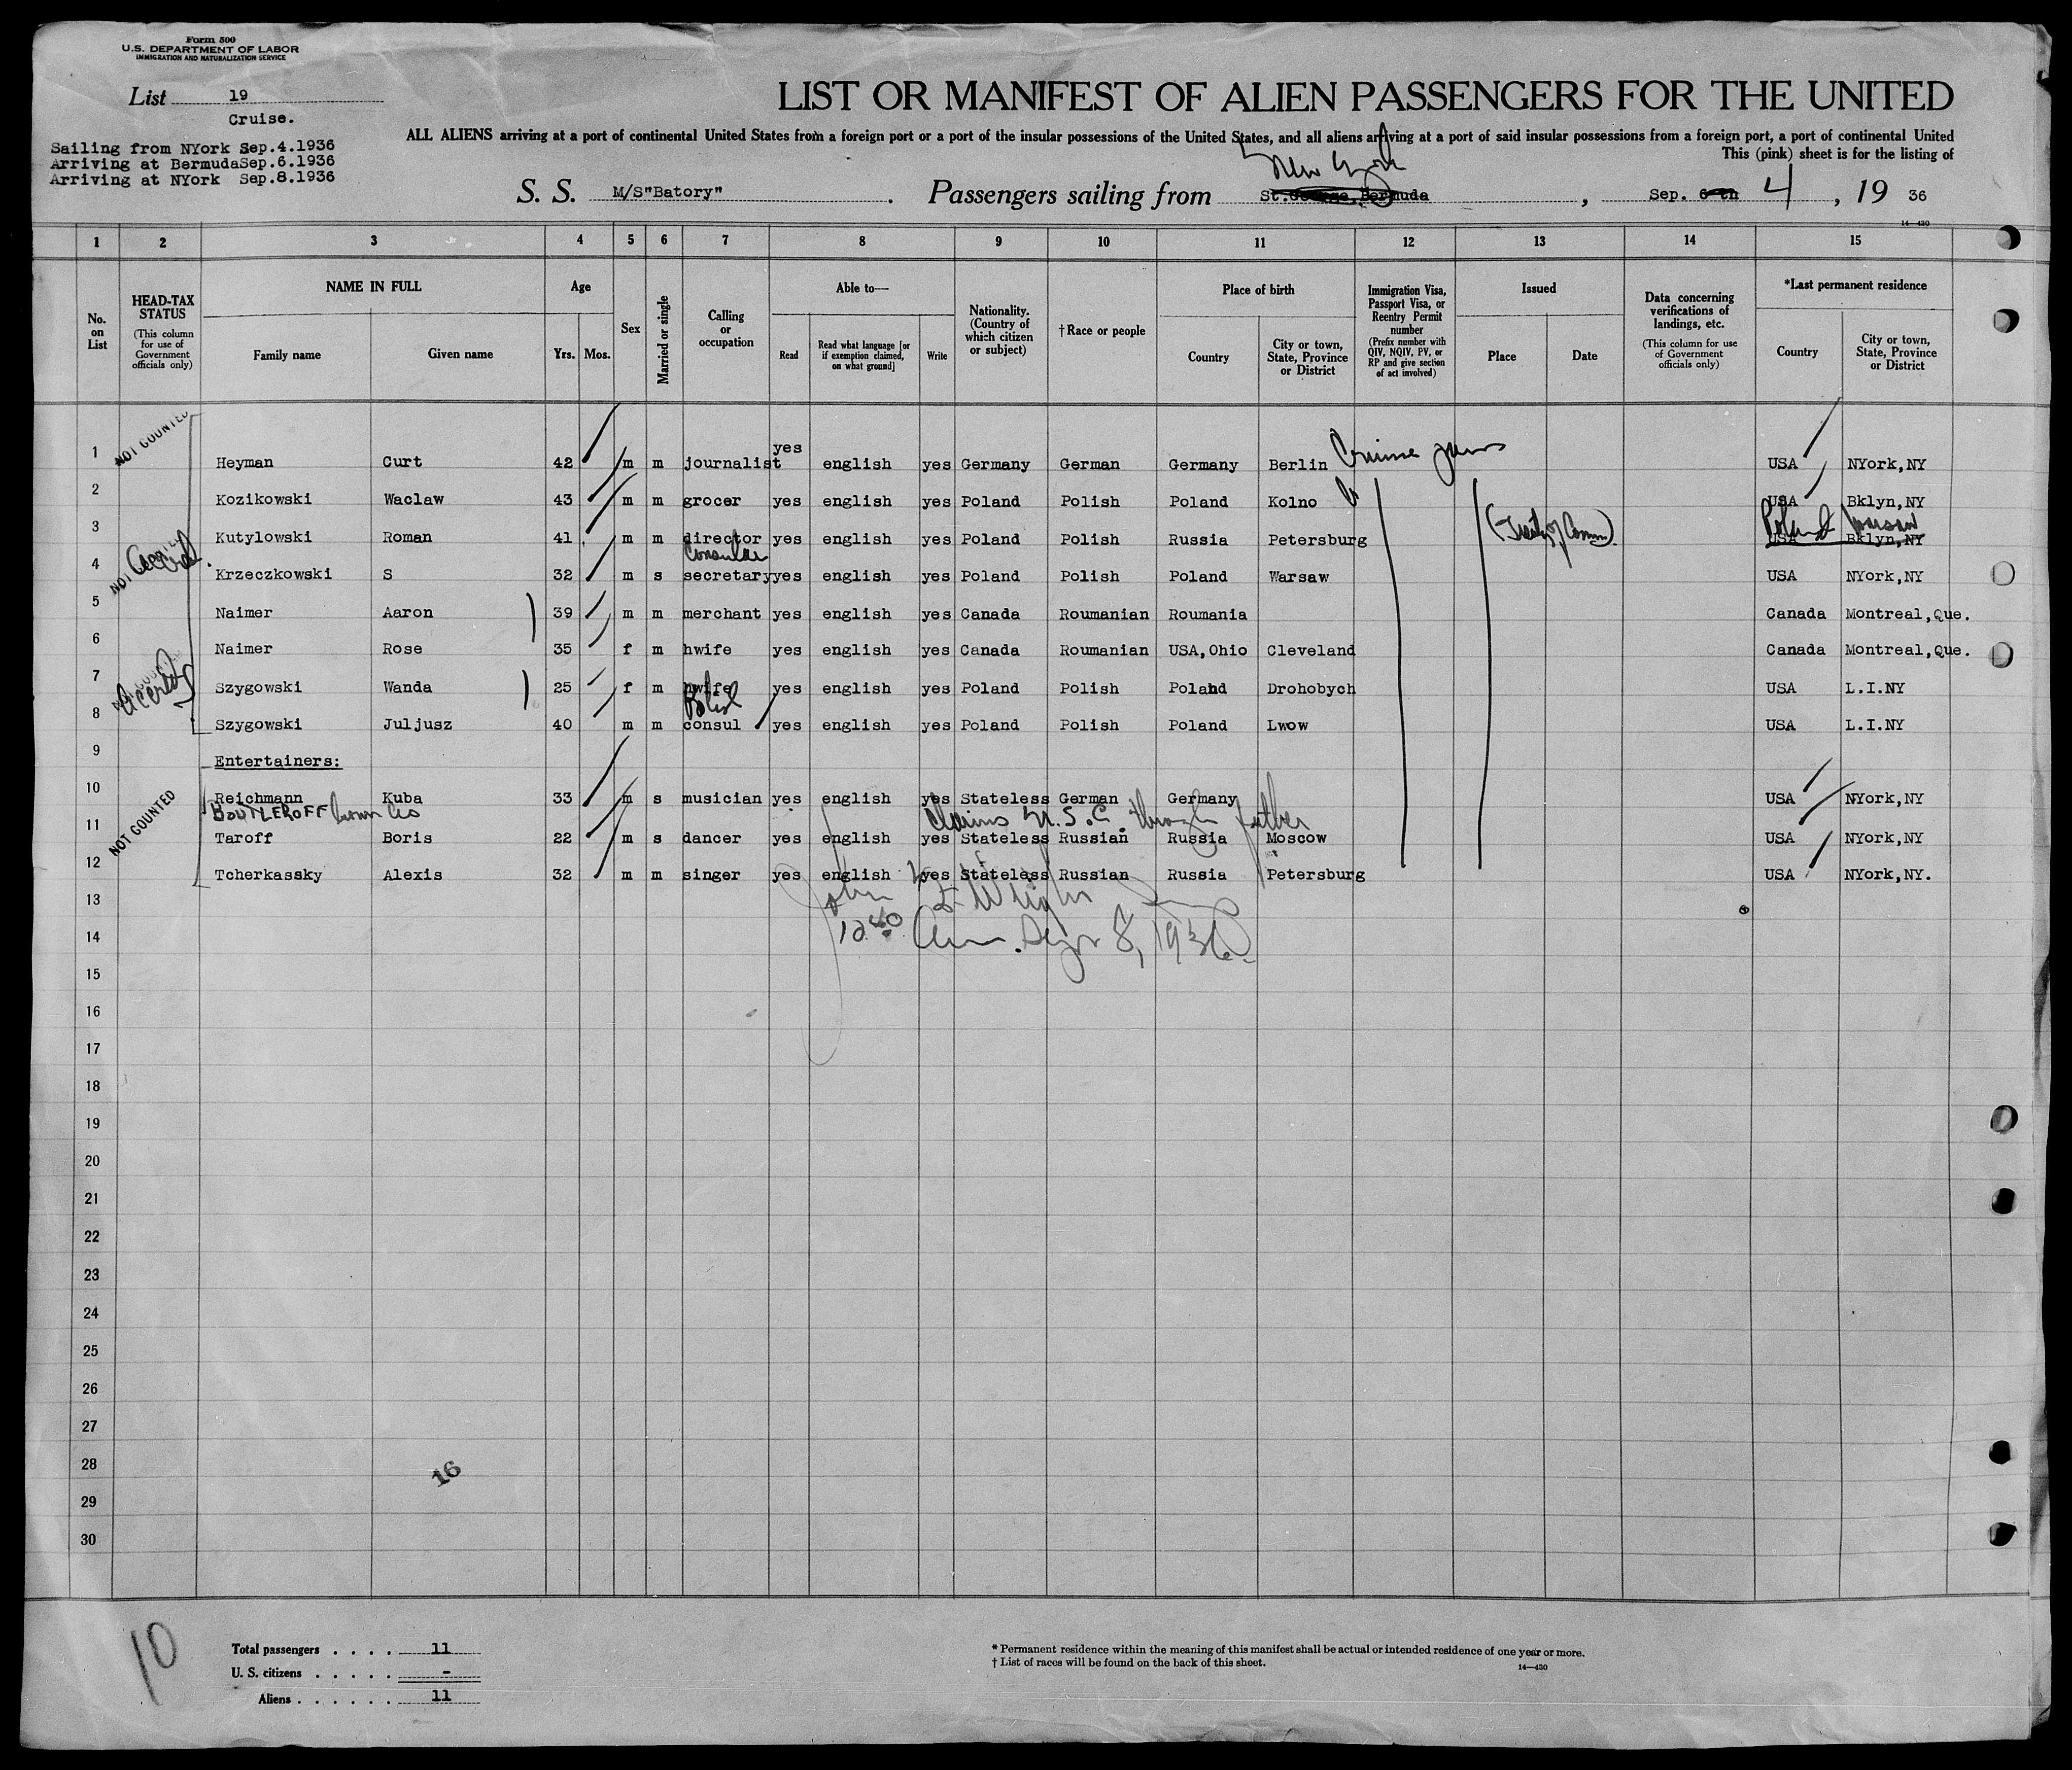 Form 500
U.S. DEPARTMENT OF LABOR
IMMIGRATION AND NATURALIZATION SERVICE
List 19
Cruise.
Sailing from NYork Sep.4.1936
Arriving at BermudaSep.6.1936
Arriving at NYork Sep.8.1936
LIST OR MANIFEST OF ALIEN PASSENGERS FOR THE UNITED
ALL ALIENS arriving at a port of continental United States from a foreign port or a port of the insular possessions of the United States, and all aliens arriving at a port of said insular possessions from a foreign port, a port of continental United
This (pink) sheet is for the listing of
New York
S. S. M/S"Batory" . Passengers sailing from St.George, Bermuda , Sep. 6th 4 , 19 36
14—430
1 2 3 4 5 6 7 8 9 10 11 12 13 14 15
No. on List
HEAD-TAX STATUS
(This column for use of Government officials only)
NAME IN FULL
Family name Given name
Age
Yrs. Mos.
Sex
Married or single
Calling or occupation
Able to—
Read
Read what language [or if exemption claimed, on what ground]
Write
Nationality. (Country of which citizen or subject)
†Race or people
Place of birth
Country
City or town, State, Province or District
Immigration Visa, Passport Visa, or Reentry Permit number
(Prefix number with QIV, NQIV, PV, or RP and give section of act involved)
Issued
Place Date
Data concerning verifications of landings, etc.
(This column for use of Government officials only)
*Last permanent residence
Country
City or town, State, Province or District
NOT COUNTED
1 Heyman Curt 42 m m journalist yes english yes Germany German Germany Berlin USA NYork,NY
2 Kozikowski Waclaw 43 m m grocer yes english yes Poland Polish Poland Kolno USA Bklyn,NY
Poland Warsaw
3 Kutylowski Roman 41 m m director yes english yes Poland Polish Russia Petersburg USA Bklyn,NY
Consular
4 Krzeczkowski S 32 m s secretary yes english yes Poland Polish Poland Warsaw USA NYork,NY
5 Naimer Aaron 39 m m merchant yes english yes Canada Roumanian Roumania Canada Montreal,Que.
6 Naimer Rose 35 f m hwife yes english yes Canada Roumanian USA,Ohio Cleveland Canada Montreal,Que.
7 Szygowski Wanda 25 f m hwife yes english yes Poland Polish Poland Drohobych USA L.I.NY
Polish
8 Szygowski Juljusz 40 m m consul yes english yes Poland Polish Poland Lwow USA L.I.NY
9 Entertainers:
10 Reichmann Kuba 33 m s musician yes english yes Stateless German Germany USA NYork,NY
BOUTLEROFF Claims U.S.C. through father
NOT COUNTED
11 Taroff Boris 22 m s dancer yes english yes Stateless Russian Russia Moscow USA NYork,NY
12 Tcherkassky Alexis 32 m m singer yes english yes Stateless Russian Russia Petersburg USA NYork,NY.
13
14
15
16
17
18
19
20
21
22
23
24
25
26
27
28
16
29
30
10
Total passengers . . . . 11
U. S. citizens . . . . . -
Aliens . . . . . . 11
* Permanent residence within the meaning of this manifest shall be actual or intended residence of one year or more.
† List of races will be found on the back of this sheet.
14—430